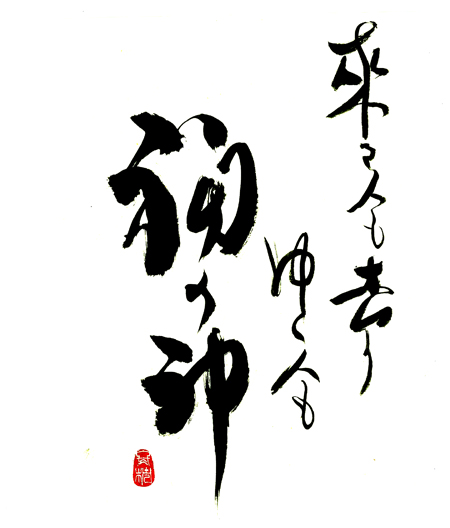 来る人も去り
ゆく人も
福の神